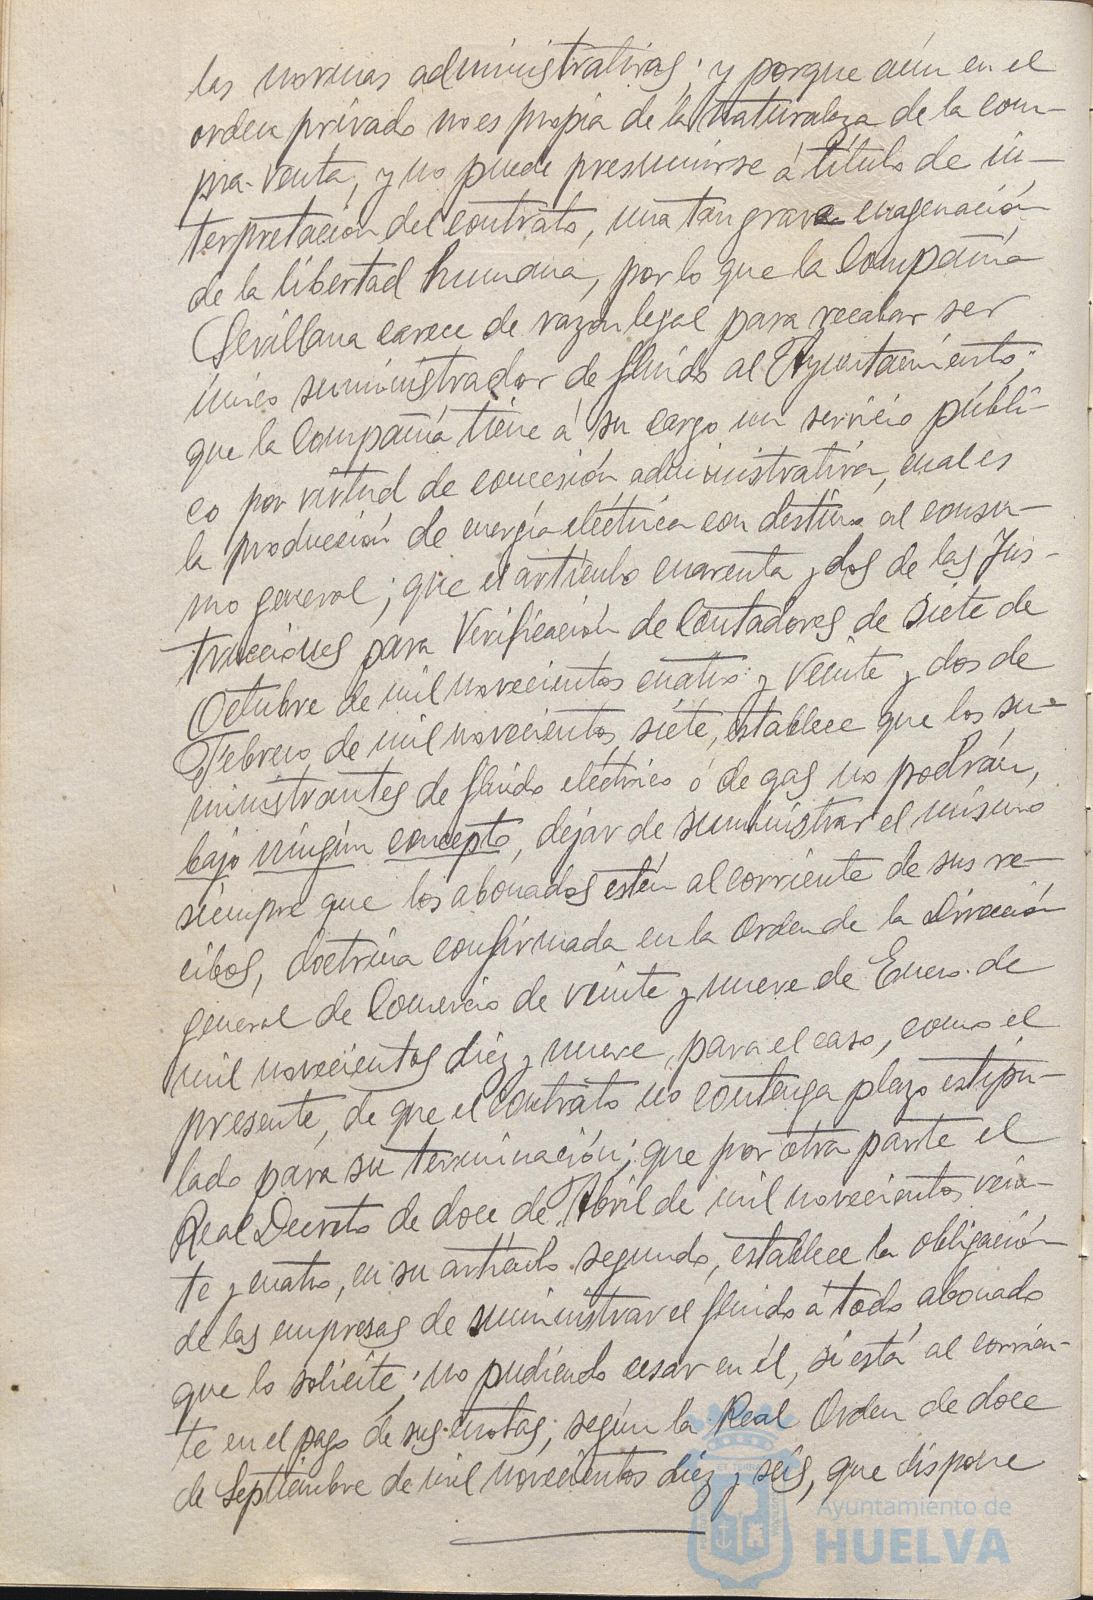 las normas administrativas; y porque aún en el
orden privado no es propia de la naturaleza de la com-
pra-venta, y no puede presumirse á título de in-
terpretación del contrato, una tan grave enagenación
de la libertad humana, por lo que la Compañía
Sevillana carece de razón legal para recabar ser
único suministrador de flúido al Ayuntamiento;
que la Compañía tiene á su cargo un servicio públi-
co por virtud de concesión administrativa, cual es
la producción de energía eléctrica con destino al consu-
mo general; que el artículo cuarenta y dos de las Ins-
trucciones para Verificación de Contadores de siete de
Octubre de mil novecientos cuatro y veinte y dos de
Febrero de mil novecientos siete, establece que los su-
ministrantes de flúido eléctrico ó de gas no podrán,
bajo ningún concepto, dejar de suministrar el mismo
siempre que los abonados estén al corriente de sus re-
cibos, doctrina confirmada en la Orden de la Dirección
general de Comercio de veinte y nueve de Enero de
mil novecientos diez y nueve, para el caso, como el
presente, de que el contrato no contenga plazo estipu-
lado para su terminación; que por otra parte el
Real Decreto de doce de Abril de mil novecientos vein-
te y cuatro, en su artículo segundo, establece la obligación
de las empresas de suministrar el flúido á todo abonado
que lo solicite; no pudiendo cesar en él, si está al corrien-
te en el pago de sus cuotas, según la Real Orden de doce
de Septiembre de mil novecientos diez y seis, que dispone
Ayuntamiento de
HUELVA